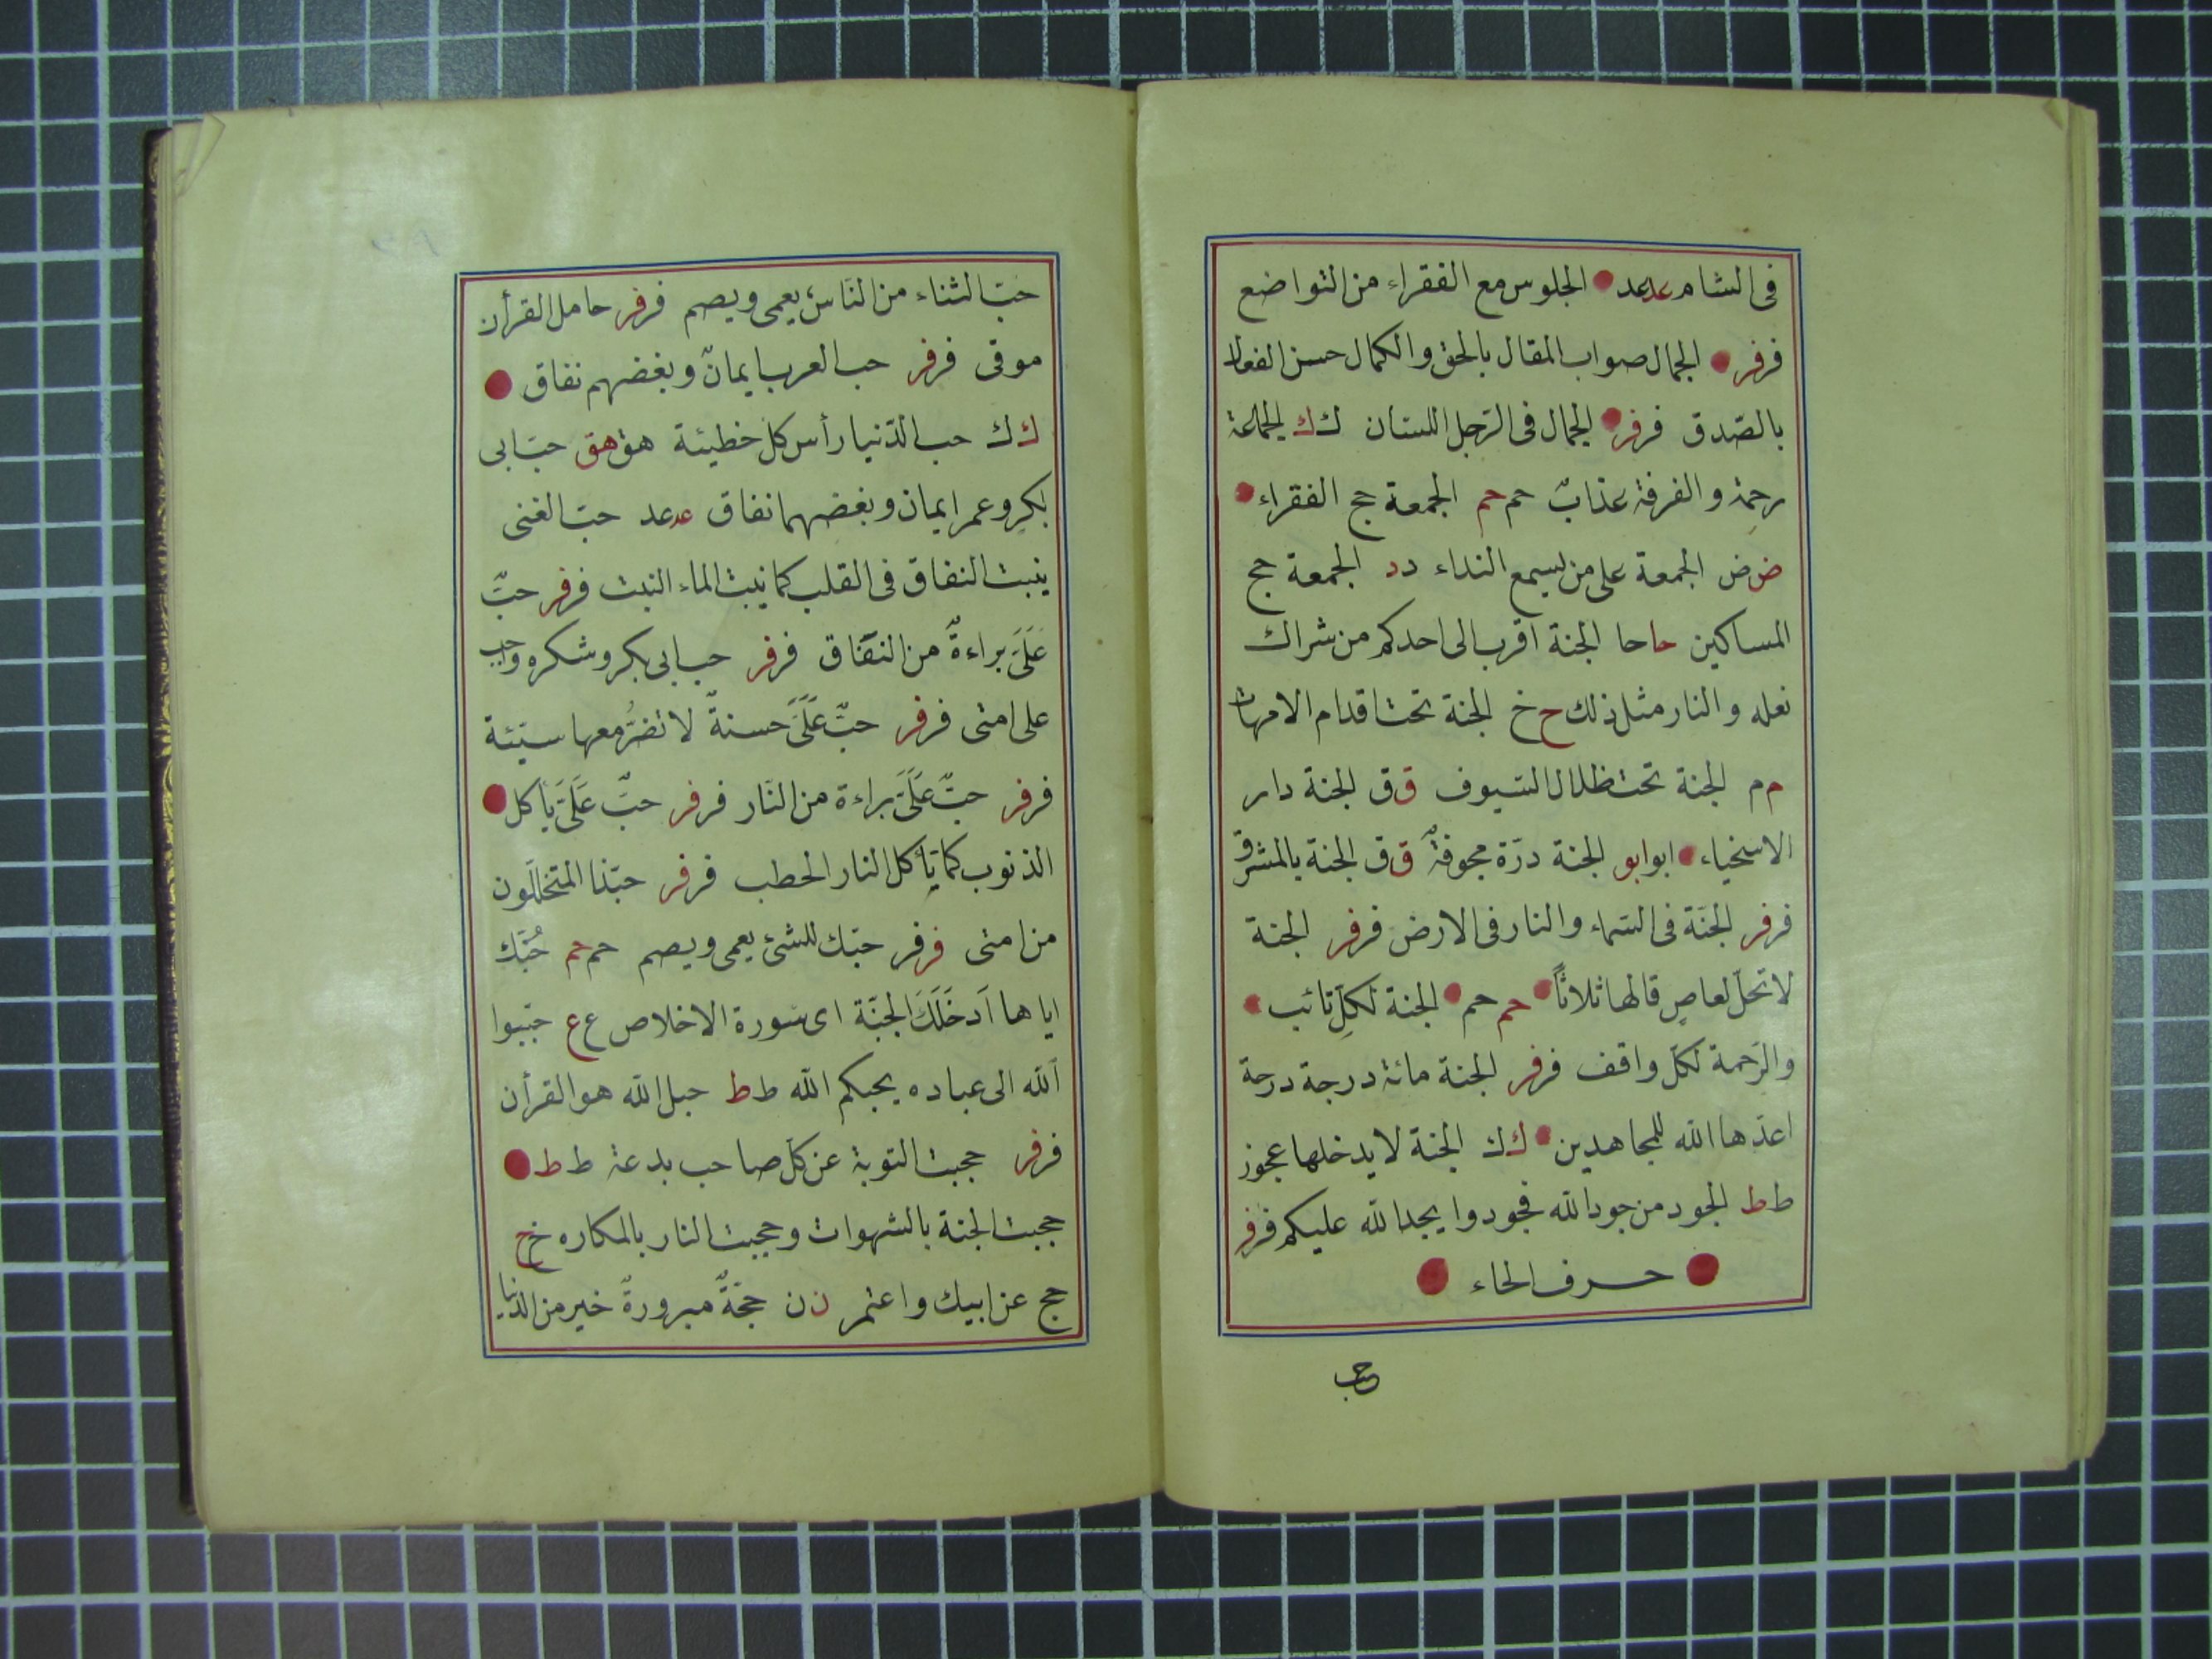 فى الشام عد عد الجلوس مع الفقراء من التواضع
فر فر الجمال صواب المقال بالحق والكمال حسن الفعال
بالصّدق فر فر الجمال فى الرّجل اللسان ك ك الجماعة
رحمة والفرقة عذابٌ حم حم الجمعة حج الفقراء
ض ض الجمعة على من يسمع النداء د د الجمعة حج
المساكين حا حا الجنة اقرب الى احدكم من شراك
نعله والنار مثل ذلك ح خ الجنة تحت اقدام الامهات
م م الجنة تحت ظلال السّيوف ق ق الجنة دار
الاسخياء ابو ابو الجنة درّة مجوفةٌ ق ق الجنة بالمشرق
فر فر الجنّة فى السّماء والنار فى الارض فر فر الجنة
لا تحلّ لعاصٍ قالها ثلاثاً حم حم الجنة لكلّ تائب
والرّحمة لكلّ واقف فر فر الجنة مائة درجة درجة
اعدّها الله للمجاهدين ك ك الجنة لا يدخلها عجوز
ط ط الجود من جود الله فجودوا يجد الله عليكم فر فر
حرف الحاء
حب
حبّ الثناء من النّاس يعمى ويصم فر فر حامل القرأن
موقى فر فر حب العرب ايمانٌ وبغضهم نفاق
ك ك حب الدّنيا رأس كلّ خطيئة هق هق حبّ ابى
بكر وعمر ايمان وبغضهما نفاق عد عد حبّ الغنى
ينبت النفاق فى القلب كما ينبت الماء النبت فر فر حبّ
عَلَىّ براءةٌ من النّفاق فر فر حب ابى بكر وشكره واجب
على امتى فر فر حبّ عَلَىّ حسنةٌ لا تضرُّ معها سيّئة
فر فر حبّ عَلَىّ براءة من النّار فر فر حبّ عَلَىّ يأكل
الذنوب كما يأكل النار الحطب فر فر حبّذا المتخللّون
من امتى فر فر حبّك للشئ يعمى ويصم حم حم حُبّك
اياها اَدخَلَكَ الجنّة اى سورة الاخلاص ع ع حبّبوا
الله الى عباده يحبكم الله ط ط حبل الله هو القرأن
فر فر حجبت التوبة عن كلّ صاحب بدعة ط ط
حجبت الجنة بالشهوات وحجبت النار بالمكاره خ ح
حج عن ابيك واعتمر ن ن حجّةٌ مبرورةٌ خير من الدّنيا